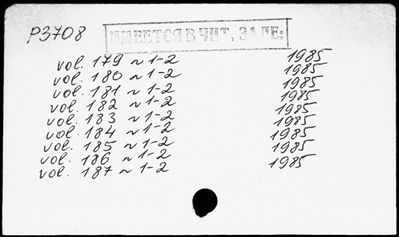 P3708
ИМЕЕТСЯ В ЧИТ. ЗАЛЕ:
vol. 179 ~ 1-2 1985
vol. 180 ~ 1-2 1985
vol. 181 ~ 1-2 1985
vol. 182 ~ 1-2 1985
vol. 183 ~ 1-2 1985
vol. 184 ~ 1-2 1985
vol. 185 ~ 1-2 1985
vol. 186 ~ 1-2 1985
vol. 187 ~ 1-2 1985